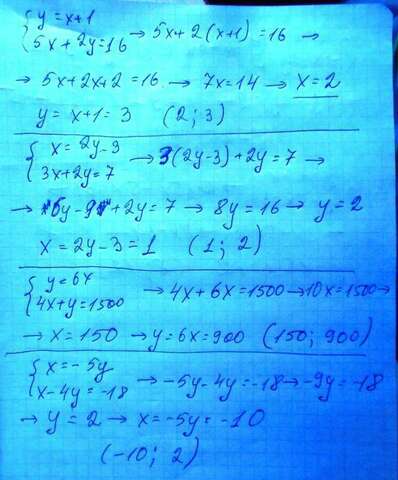 { y = x+1
5x + 2y = 16 → 5x + 2(x+1) = 16 →
→ 5x + 2x + 2 = 16 → 7x = 14 → x = 2
y = x+1 = 3 (2; 3)
{ x = 2y-3
3x + 2y = 7 → 3(2y-3) + 2y = 7 →
→ 6y - 9 + 2y = 7 → 8y = 16 → y = 2
x = 2y - 3 = 1 (1; 2)
{ y = 6x
4x + y = 1500 → 4x + 6x = 1500 → 10x = 1500 →
→ x = 150 → y = 6x = 900 (150; 900)
{ x = -5y
x - 4y = -18 → -5y - 4y = -18 → -9y = -18
→ y = 2 → x = -5y = -10
(-10; 2)